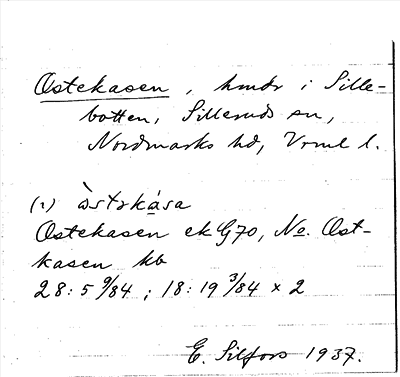 Ostekasen, hmdr i Sille-
botten, Silleruds sn,
Nordmarks hd, Vrml l.
(1) òstekása
Ostekasen ek G70, No. Ost-
kasen kb
28:5 9/84; 18:19 3/84 x 2
E. Silfors 1937.